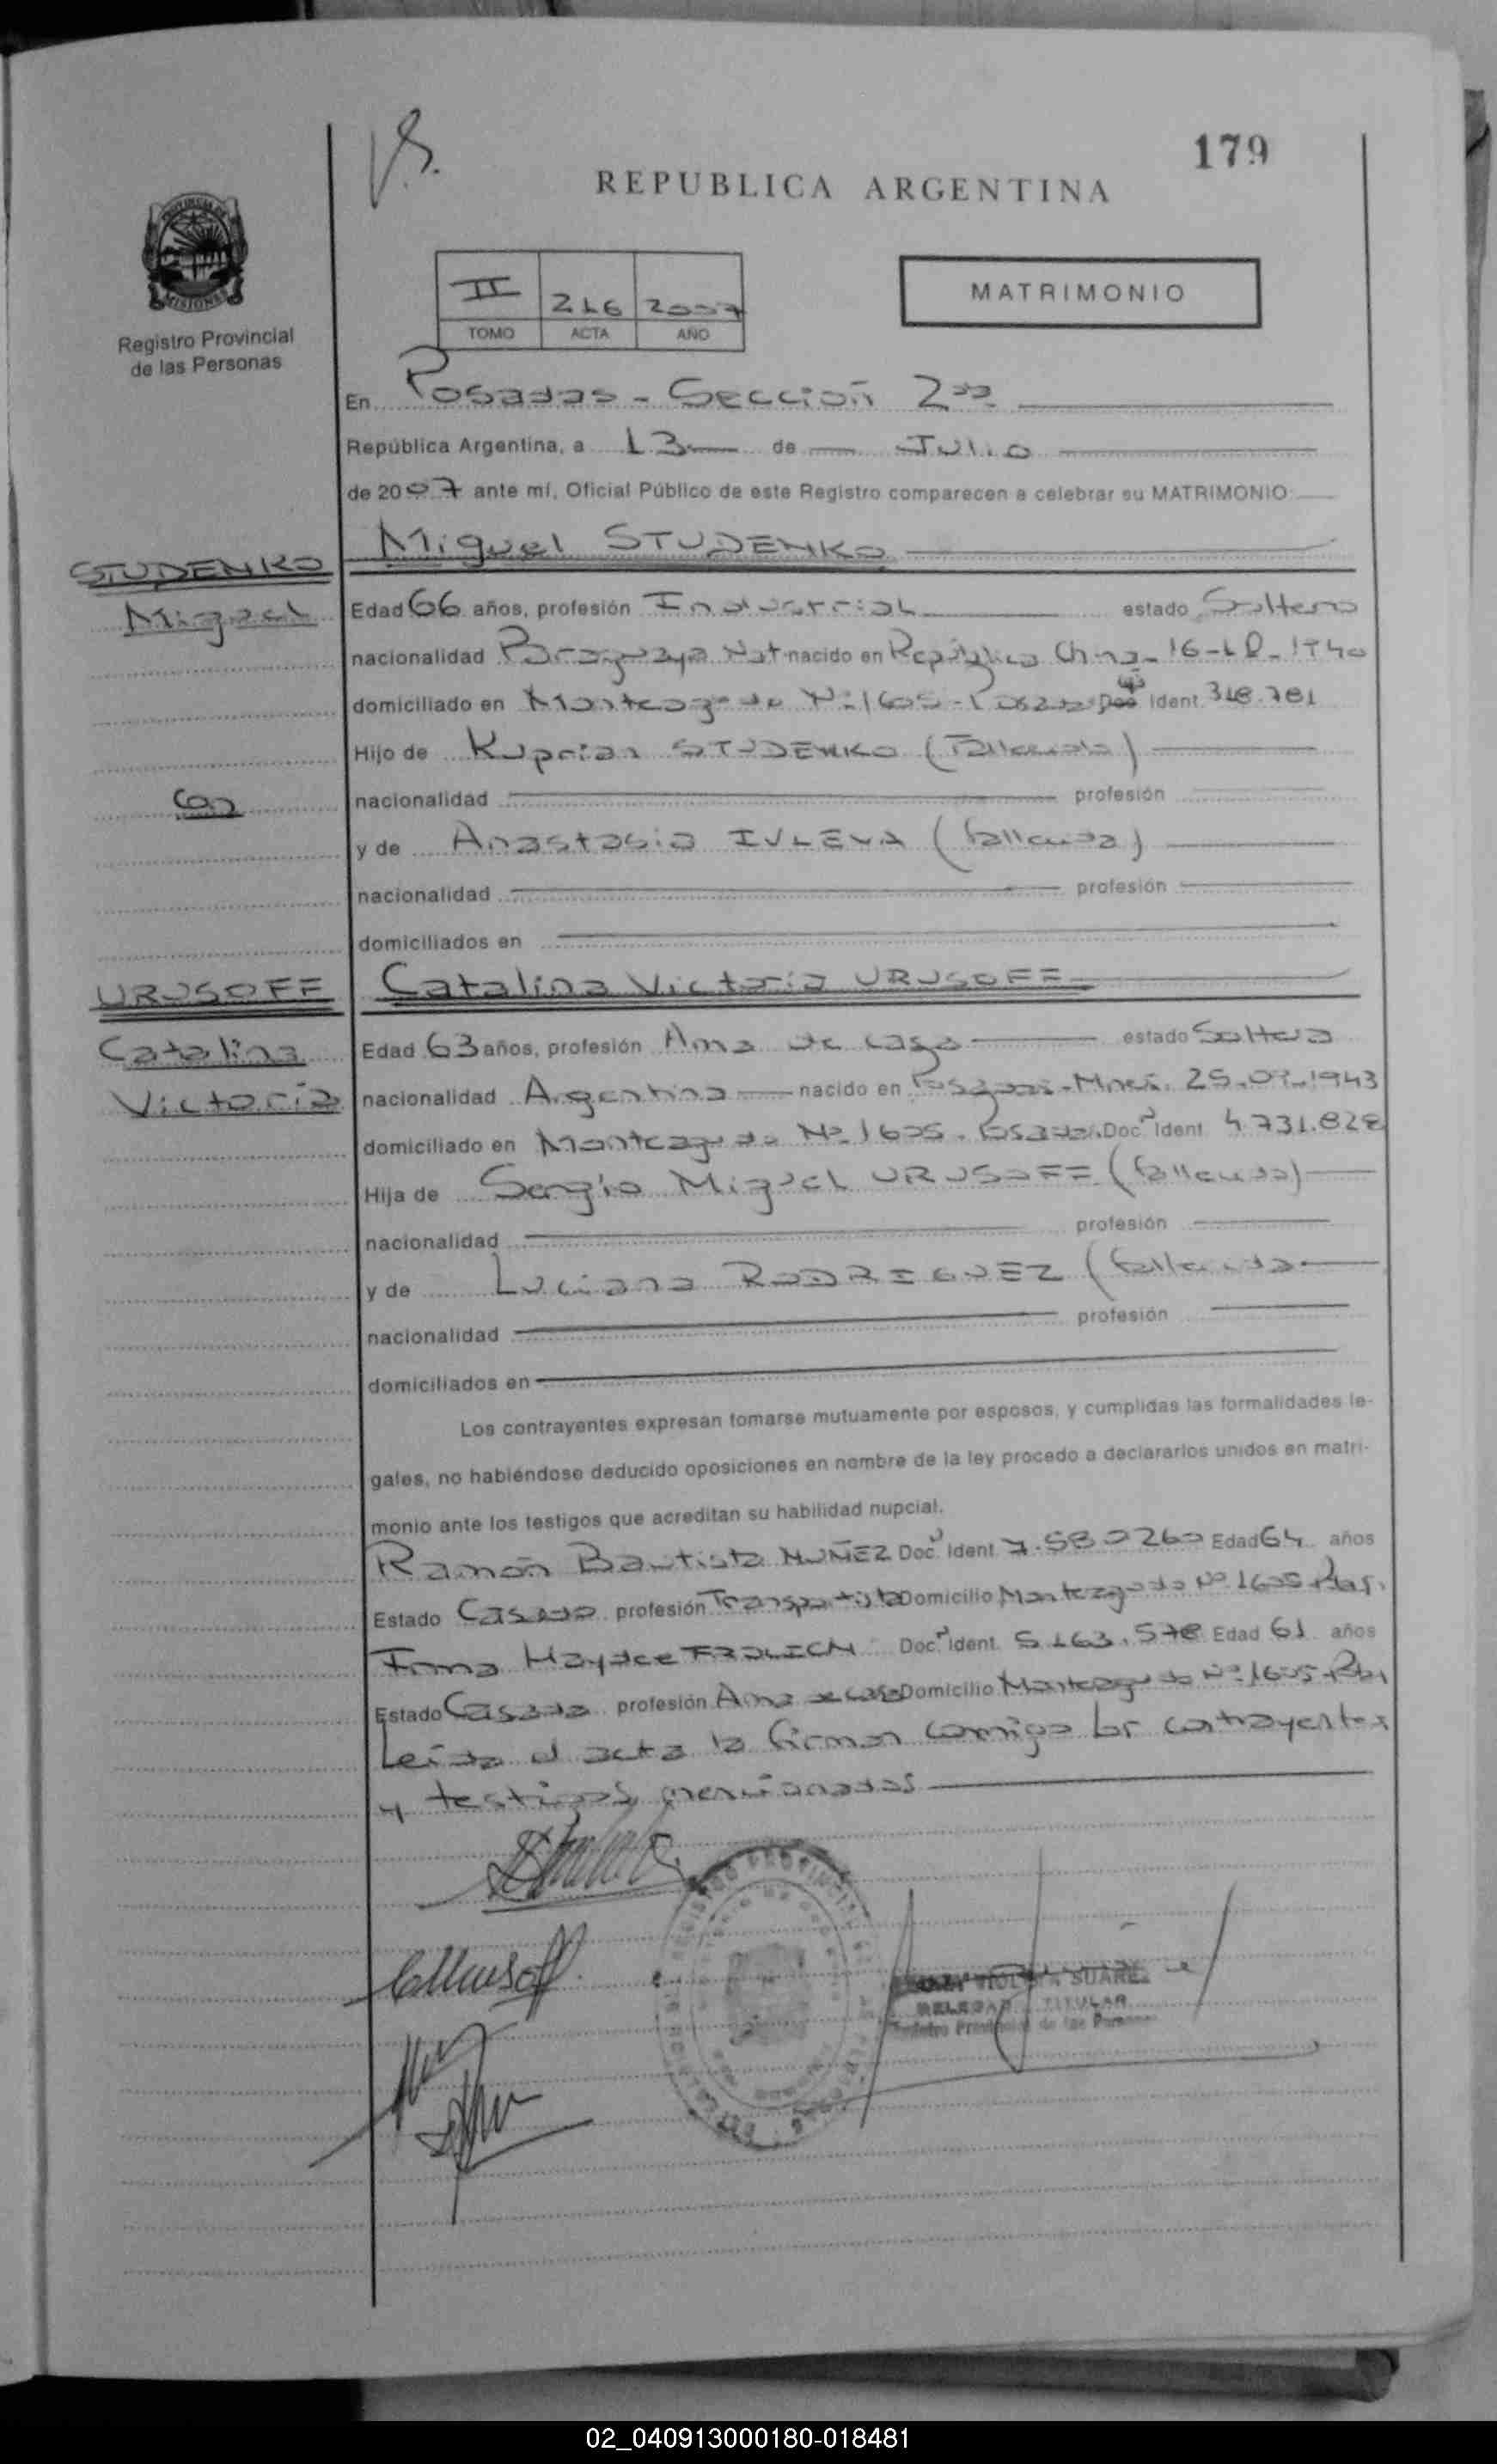 179
REPUBLICA ARGENTINA
PROVINCIA DE
MISIONES
Registro Provincial
de las Personas
II 216 2007
TOMO ACTA AÑO
MATRIMONIO
En Posadas - Sección 2da
República Argentina, a 13 de Julio
de 2007 ante mí, Oficial Público de este Registro comparecen a celebrar su MATRIMONIO
Miguel STUDENKO
STUDENKO
Miguel
Edad 66 años, profesión Industrial estado Soltero
nacionalidad Paraguaya Nat nacido en República China - 16-10-1940
domiciliado en Monteagudo Nº 1605 - Posadas Doc Ident. 318.781
Hijo de Kuprian STUDENKO (Fallecido)
Con
nacionalidad profesión
y de Anastasia IVLEVA (fallecida)
nacionalidad profesión
domiciliados en
URUSOFF
Catalina Victoria URUSOFF
Catalina
Victoria
Edad 63 años, profesión Ama de casa estado Soltera
nacionalidad Argentina nacido en Posadas - Mnes. 25-09-1943
domiciliado en Monteagudo Nº 1605 - Posadas. Doc. Ident 4.731.828
Hija de Sergio Miguel URUSOFF (fallecido)
nacionalidad profesión
y de Luciana RODRIGUEZ (fallecida
nacionalidad profesión
domiciliados en
Los contrayentes expresan tomarse mutuamente por esposos, y cumplidas las formalidades le-
gales, no habiéndose deducido oposiciones en nombre de la ley procedo a declararlos unidos en matri-
monio ante los testigos que acreditan su habilidad nupcial.
Ramón Bautista NUÑEZ Doc. Ident 7.580260 Edad 64 años
Estado Casado profesión Transportista Domicilio Monteagudo Nº 1605 - Pdas.
Irma Haydee FROLICH Doc. Ident. 5.163.578 Edad 61 años
Estado Casada profesión Ama de casa Domicilio Monteagudo Nº 1605 - Pdas
Leida el acta la firman conmigo los contrayentes
y testigos mencionados
SUAREZ
TITULAR
Registro Provincial de las Personas
02_040913000180-018481